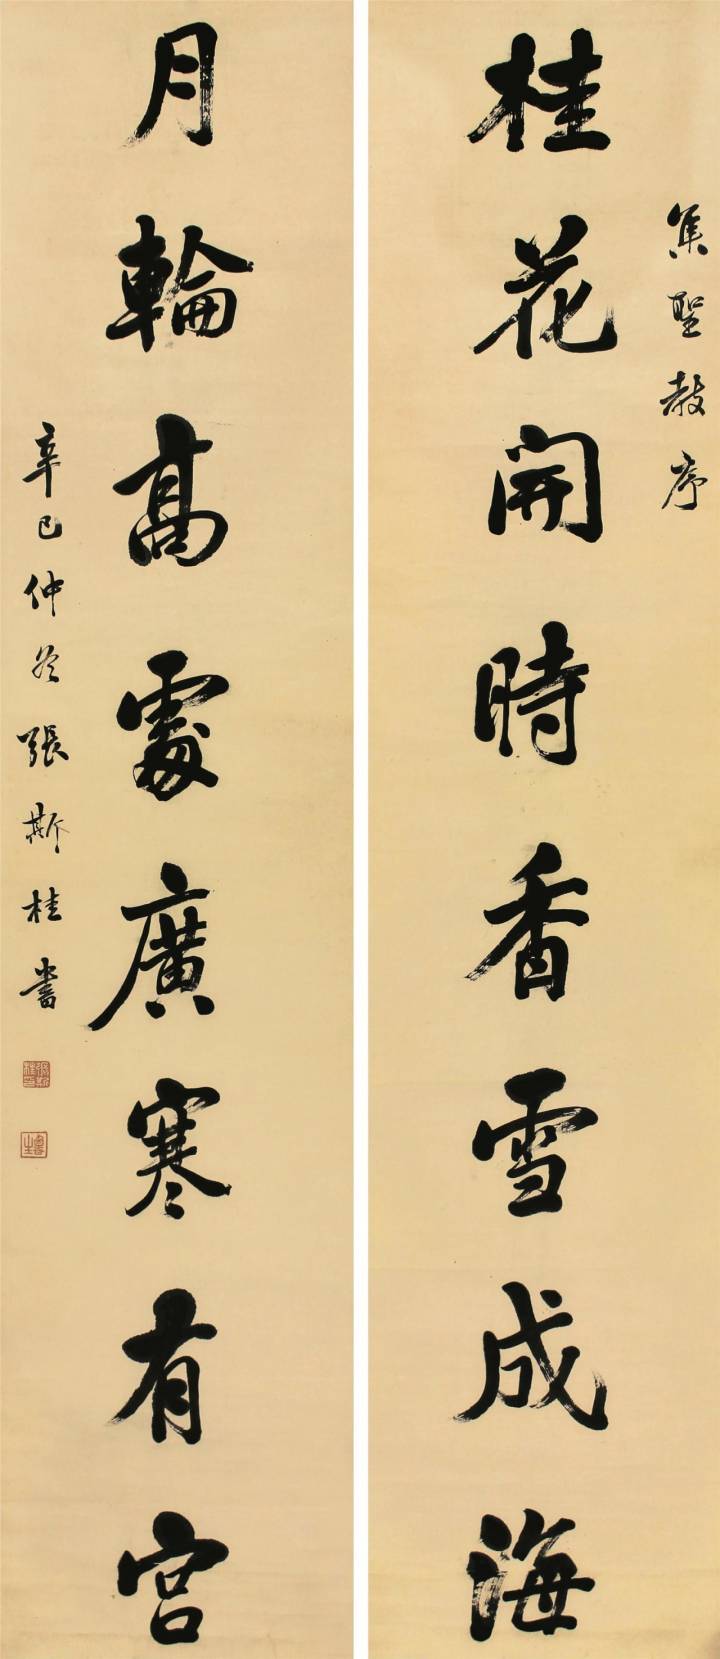 集聖教序
桂花開時香雪成海
月輪高處廣寒有宮
辛巳仲冬張斯桂書